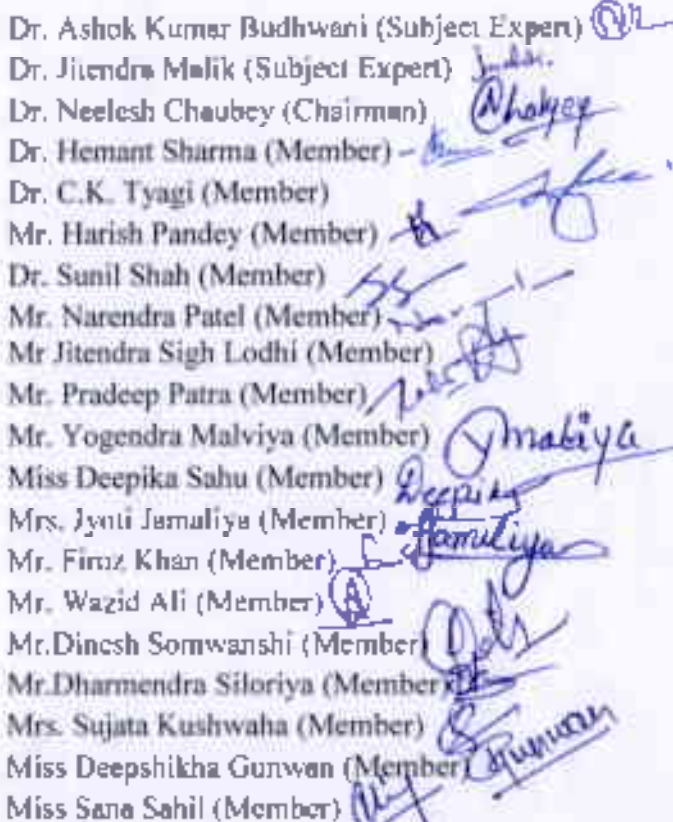 Dr. Ashok Kumar Budhwani (Subject Expert)
Dr. Jitendra Malik (Subject Expert)
Dr. Neelesh Chaubey (Chairman)
Dr. Hemant Sharma (Member) -
Dr. C.K. Tyagi (Member)
Mr. Harish Pandey (Member)
Dr. Sunil Shah (Member)
Mr. Narendra Patel (Member)
Mr Jitendra Sigh Lodhi (Member)
Mr. Pradeep Patra (Member)
Mr. Yogendra Malviya (Member) Ymalviya
Miss Deepika Sahu (Member) Deepika
Mrs. Jyoti Jamaliya (Member) Jamuliya
Mr. Firuz Khan (Member)
Mr. Wazid Ali (Member)
Mr.Dinesh Somwanshi (Member)
Mr.Dharmendra Siloriya (Member)
Mrs. Sujata Kushwaha (Member)
Miss Deepshikha Gunwan (Member) Gunwan
Miss Sana Sahil (Member)